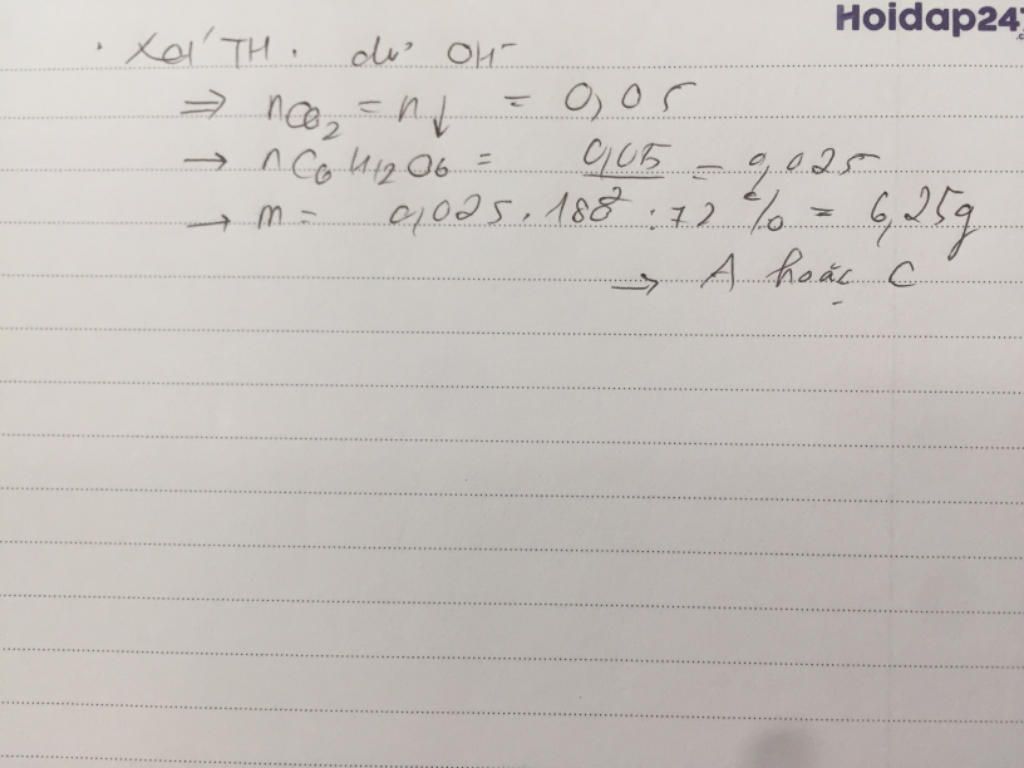 Hoidap247
. Xét TH . dư OH⁻
⇒ nCO₂ = n↓ = 0,05
→ nC₆H₁₂O₆ = 0,05/2 = 0,025
→ m = 0,025 . 180 : 72 % = 6,25g
→ A hoặc C